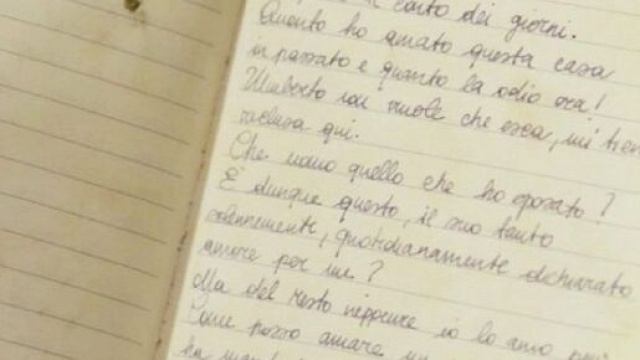 il conto dei giorni.
Quanto ho amato questa casa
in passato e quanto la odio ora!
Umberto non vuole che esca, mi tien
reclusa qui.
Che uomo quello che ho sposato?
E dunque questo, il suo tanto
solennemente, quotidianamente dichiarato
amore per me?
Ma del resto neppure io lo amo più
Come posso amare un
ha